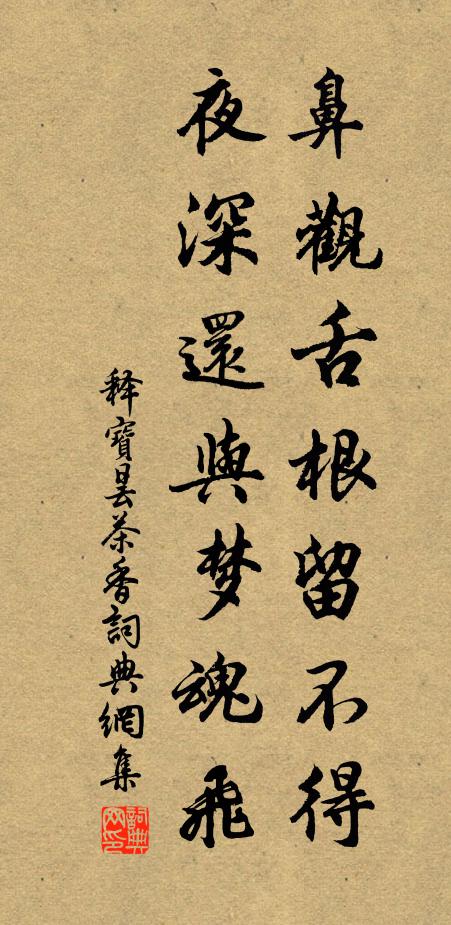 鼻觀舌根留不得
夜深還與梦魂飛
释寶曇茶香詞典網集
詞典网印